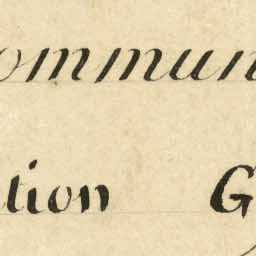 ommun
tion G